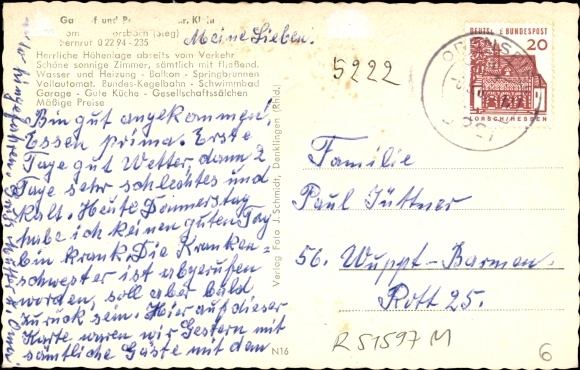 Meine Lieben.
Herrliche Höhenlage abseits vom Verkehr
Schöne sonnige Zimmer, sämtlich mit fließend.
Wasser und Heizung - Balkon - Springbrunnen
Vollautomat. Bundes-Kegelbahn - Schwimmbad
Garage - Gute Küche - Gesellschaftssälchen
Mäßige Preise
(Sieg)
0 22 94 - 235
Bin gut angekommen.
Essen prima. Erste
Tage gut Wetter, dann 2
Tage sehr schlechtes und
kalt. Heute Donnerstag
habe ich keinen guten Tag
bin krank. Die Kranken=
schwester ist abgerufen
worden, soll aber bald
zurück sein. Hier auf dieser
Karte waren wir Gestern mit
sämtliche Gäste mit dem
hingefahren.
Oma
Verlag Foto J. Schmidt, Denklingen (Rhld.)
N16
5222
DEUTSCHE BUNDESPOST
20
LORSCH/HESSEN
Familie
Paul Jüttner
56. Wuppt-Barmen.
Rott 25.
R51597M
6